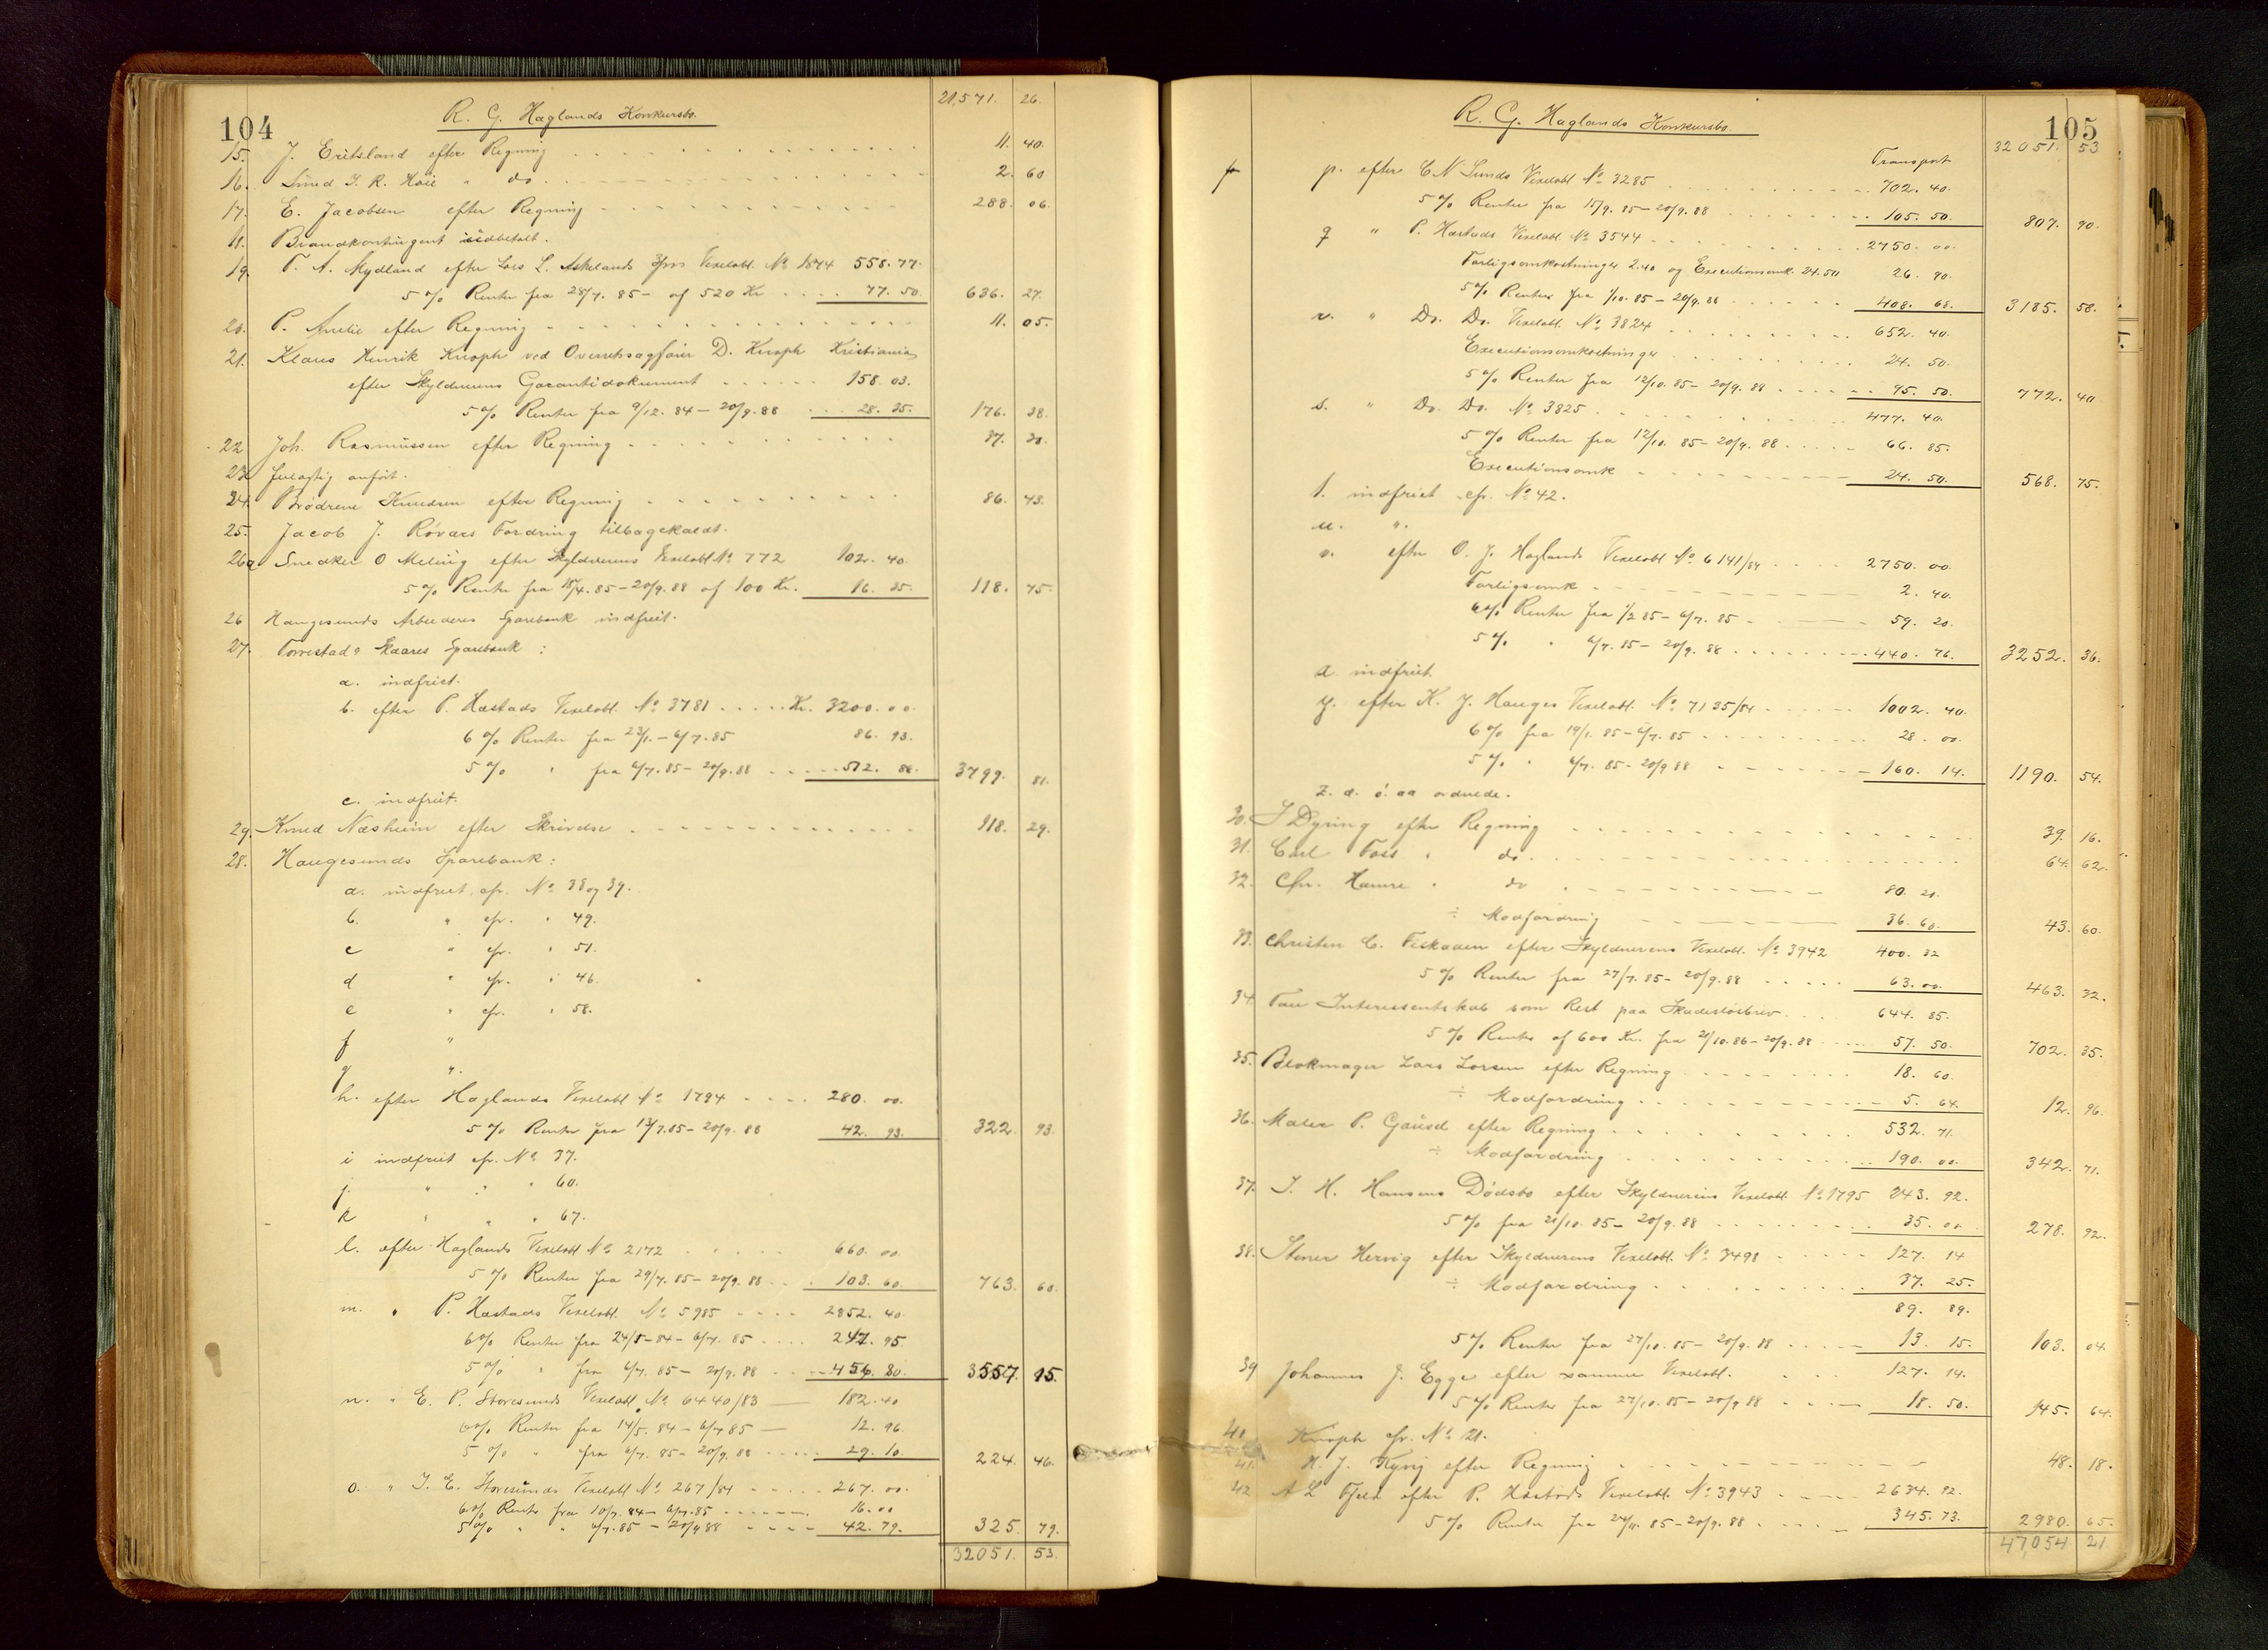 104
R. G. Haglands Konkursbo. 21,571. 26.
15. J. Eritsland efter Regning 11. 40.
16. Smed T. R. Hoie " do 2. 60
17. E. Jacobsen efter Regning 288. 06.
18. Brandkontingent indbetalt.
19. T. A. Mydland efter Lars L. Askelands Vexelobl. No 1844 558.77.
5 % Renter fra 28/7. 85 - af 520 Kr 77. 50. 636. 27.
20. P. efter Regning 11. 05.
21. Klaus Henrik Knoph ved Overretssagfører D. Knoph Kristiania
efter Skyldnerens Garantidokument 158. 03.
5 % Renter fra 9/12. 84 - 20/9. 88 28. 35. 176. 38.
22 Joh. Rasmussen efter Regning 37. 30.
23 anført.
24. Brødrene Knudsen efter Regning 86. 43.
25. Jacob J. Røværs Fordring tilbagekaldt.
26a Snedker O Meling efter Skyldnerens Vexelobl No 772 102. 40.
5 % Renter fra 18/4. 85 - 20/9. 88 af 100 Kr. 16. 35. 118. 75.
26 Haugesunds Arbeideres Sparebank indfriet.
27. Torvestad & Skaares Sparebank :
a. indfriet.
b. efter P. Hæstads Vexelobl. No 3781 Kr. 3200.00.
6 % Renter fra 23/1. - 6/7. 85 86. 93.
5 % " fra 6/7. 85 - 20/9. 88 512. 88. 3799. 81.
c. indfriet.
29. Knud Næsheim efter Skrivelse 118. 29.
28. Haugesunds Sparebank :
a. indfriet cfr. No 38 og 39.
b. " cfr. " 49.
c " cfr. " 51.
d " cfr. " 46.
e " cfr. " 58.
f "
g ".
h. efter Haglands Vexelobl No 1794 280. 00.
5 % Renter fra 13/7. 85 - 20/9. 88 42. 93. 322. 93.
i indfriet cfr. No 37.
j. " " " 60.
k " " " 67.
l. efter Haglands Vexelobl No 2172 660. 00.
5 % Renter fra 29/7. 85 - 20/9. 88 103. 60. 763. 60.
m. " P. Hæstads Vexelobl. No 5985 2852. 40.
6 % Renter fra 24/5 - 84 - 6/7. 85 247. 95.
5 % " fra 6/7. 85 - 20/9. 88 456. 80. 3557. 15.
n. " E. P. Storesunds Vexelobl. No 6440/83 182.40
6 % Renter fra 14/5. 84 - 6/7 85 12. 96.
5 % " fra 6/7. 85 - 20/9. 88 29. 10. 224. 46.
o. " T. E. Storesunds Vexelobl No 267/84 267. 00.
6 % Renter fra 10/7. 84 - 6/7. 85 16. 00
5 % " " 6/7. 85 - 20/9 88 42. 79. 325. 79.
32051. 53.
105
R. G. Haglands Konkursbo.
Transport 32051. 53
p. efter C N Lunds Vexelobl No 3285 702. 40.
5 % Renter fra 15/9. 85 - 20/9. 88 105. 50. 807. 90.
q " P. Hæstads Vexelobl. No 3544 2750. 00.
Forligsomkostninger 2.40 og Executionsomk. 24.50 26. 90.
5 % Renter fra 1/10. 85 - 20/9. 88 408. 68. 3185. 58.
r. " Do. Do. Vexelobl. No 3824 652. 40.
Executionsomkostninger 24. 50.
5 % Renter fra 12/10. 85 - 20/9. 88 95. 50. 772. 40
s. " Do. Do. No 3825 477. 40.
5 % Renter fra 12/10. 85 - 20/9. 88 66. 85.
Executionsomk 24. 50. 568. 75.
t. indfriet cfr. No 42.
u. ".
v. efter O. J. Haglands Vexelobl No 6141/84 2750. 00.
Forligsomk 2. 40.
6 % Renter fra 1/2 85 - 6/7. 85 59. 20.
5 % " 6/7. 85 - 20/9. 88 440. 76. 3252. 36.
x. indfriet.
y. efter K. J. Hauges Vexelobl. No 7135/84 1002. 40.
6 % fra 19/1. 85 - 6/7. 85 28. 00.
5 % " 6/7. 85 - 20/9 88 160. 14. 1190. 54.
z. æ. ø. aa ordnede.
30. I Dyring efter Regning 39. 16.
31. Carl Foss " do. 64. 62.
32. Chr. Hamre " do 80. 20.
÷ Modfordring 36. 60. 43. 60.
33. Christen C. Fiskaaen efter Skyldnerens Vexelobl. No 3942 400. 32
5 % Renter fra 27/7. 85 - 20/9. 88 63. 00. 463. 32.
34. Tau Interessentskab som Rest paa Skadesløsbrev 644. 85.
5 % Renter af 600 Kr. fra 21/10. 86 - 20/9. 88 57. 50. 702. 35.
35. Blokmager Lars Larsen efter Regning 18. 60.
÷ Modfordring 5. 64. 12. 96.
36. Maler P. Gausel efter Regning 532. 71.
÷ Modfordring 190. 00. 342. 71.
37. J. H. Hansens Dødsbo efter Skyldnerens Vexelobl. No 1795 243. 92.
5 % fra 21/10. 85 - 20/9. 88 35. 00 278. 92.
38. Stener Hervig efter Skyldnerens Vexelobl. No 3498 127. 14
÷ Modfordring 37. 25.
89. 89.
5 % Renter fra 27/10. 85 - 20/9. 88 13. 15. 103. 04.
39 Johannes J. Egge efter samme Vexelobl. 127. 14.
5 % Renter fra 27/10. 85 - 20/9 88 18. 50. 145. 64.
40 Knoph cfr. No 21.
41. H. J. Kyvig efter Regning 48. 18.
42 A L Fjeld efter P. Hæstads Vexelobl. No 3943 2634. 92.
5 % Renter fra 24/11. 85 - 20/9. 88 345. 73. 2980. 65.
47,054 21